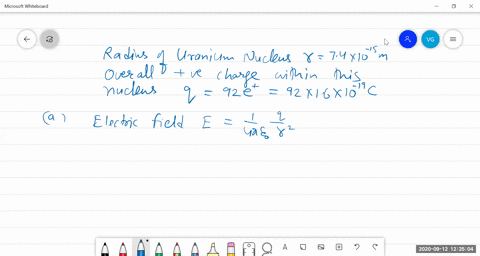 Microsoft Whiteboard
VG
Radius of Uranium Nucleus r = 7.4 × 10⁻¹⁵ m
Overall +ve charge within this
nucleus q = 92 e⁺ = 92 × 1.6 × 10⁻¹⁹ C
(a) Electric field E = 1/4πε₀ q/r²
2020-09-12 12:35:04